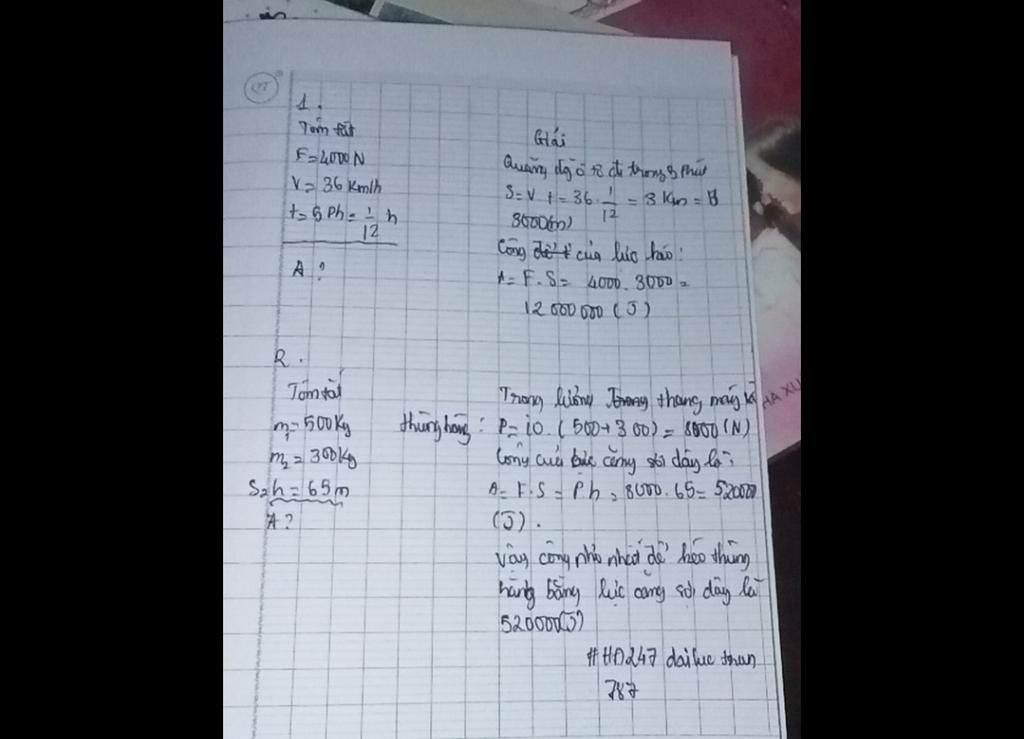 1.
Tóm tắt
F = 4000 N
V = 36 Km/h
t = 5 Ph = 1/12 h
A ?
Giải
Quãng đg ô tô đi trong 5 Phút
S = V t = 36 . 1/12 = 3 Km =
3000(m)
Công của lực kéo :
A = F . S = 4000 . 3000 =
12 000 000 (J)
2 .
Tóm tắt
m1 = 500 Kg
m2 = 300 Kg
S = h = 65 m
A ?
Trọng lượng thang máy và
thùng hàng : P = 10 . (500 + 300) = 8000 (N)
Công của lực căng sợi dây là :
A = F . S = P h = 8000 . 65 = 520000
(J) .
Vậy công nhỏ nhất để kéo thùng
hàng bằng lực căng sợi dây là
520000(J)
# HD247 dailuc tran
787
HA XU